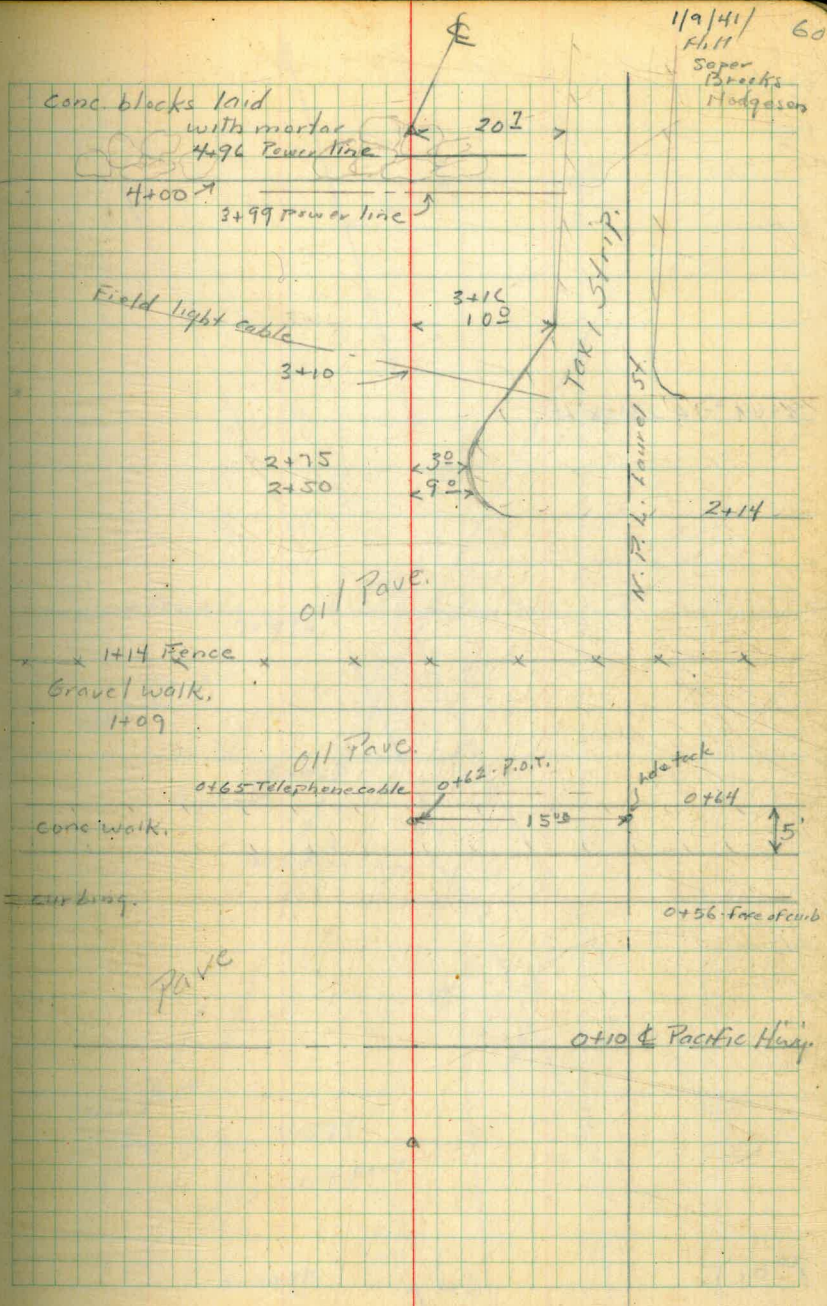 1/9/41
60
Hill
Soper
Brooks
Hodgeson
℄
Conc. blocks laid
with mortar
20 1
4+96 Power line
4+00
3+99 Power line
Taxi Strip.
Field light cable
3+16
10 0
3+10
N.P.L. Laurel St.
2+75
3 0
2+50
9 0
2+14
Oil Pave.
1+14 Fence
Gravel walk.
1+09
Oil Pave.
0+65 Telephone cable
0+62 P.O.T.
0+64
Conc walk.
15
5'
curbing.
0+56 face of curb
Pave
0+10 ℄ Pacific Hiwy.